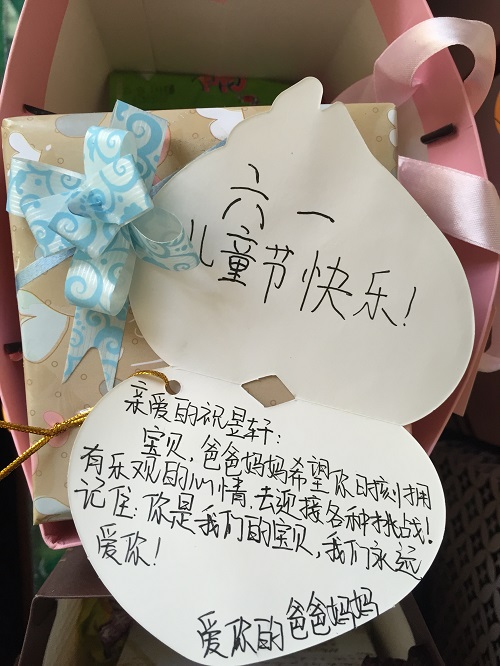 六一
儿童节快乐!
亲爱的祝昱轩:
宝贝,爸爸妈妈希望你时刻拥
有乐观的心情.去迎接各种挑战!
记住:你是我们的宝贝,我们永远
爱你!
爱你的爸爸妈妈